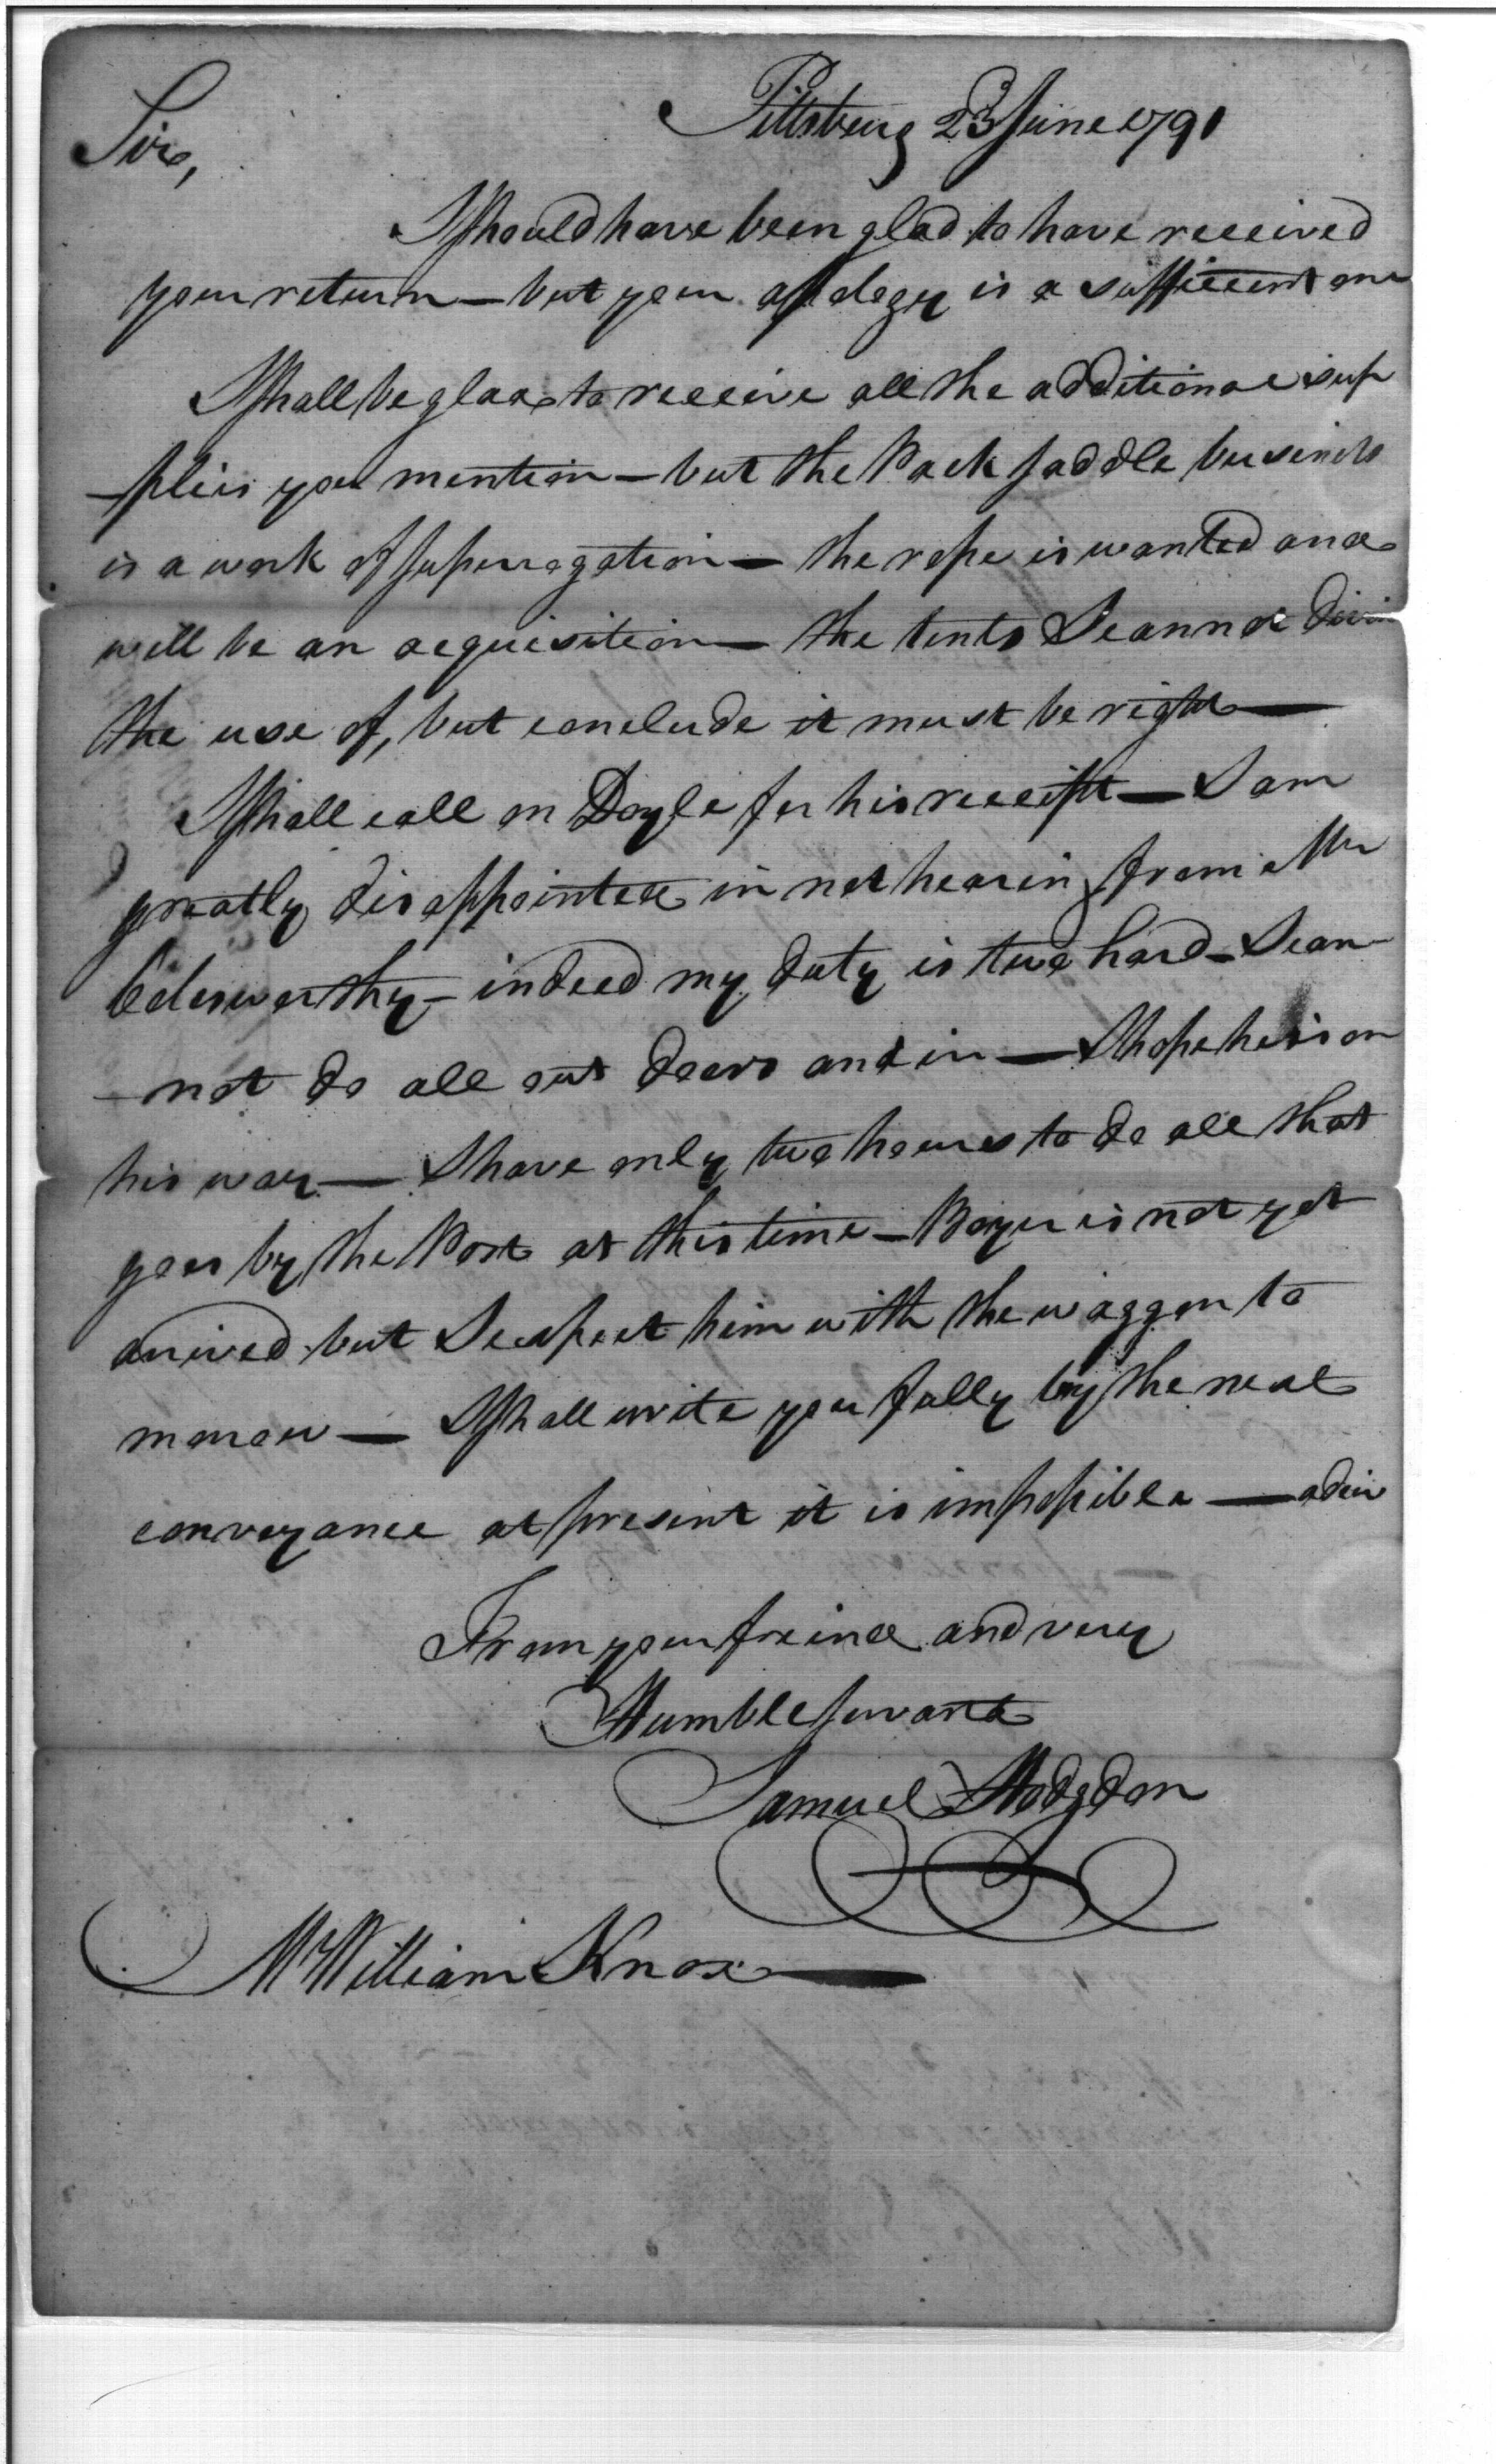 Pittsburg 23 June 1791
Sir,
I should have been glad to have received
your return — but your apology is a sufficient one
I shall be glad to receive all the additional sup
-plies you mention — but the Pack saddle business
is a work of superragation — the rope is wanted and
will be an acquisition — the tents I cannot
the use of, but conclude it must be right —
I shall call on Doyle for his receipt — I am
greatly disappointed in not hearing from Mr
Colesworthy — indeed my duty is two hard — I can
-not do all out doors and in — I hope he is on
his way — I have only two hours to do all that
goes by the Post at this time — Boyer is not yet
arrived but I expect him with the waggon to
morrow — I shall write you fully by the next
conveyance at present it is impossible — adieu
From your freind and very
Humble servant
Samuel Hodgdon
Mr William Knox —